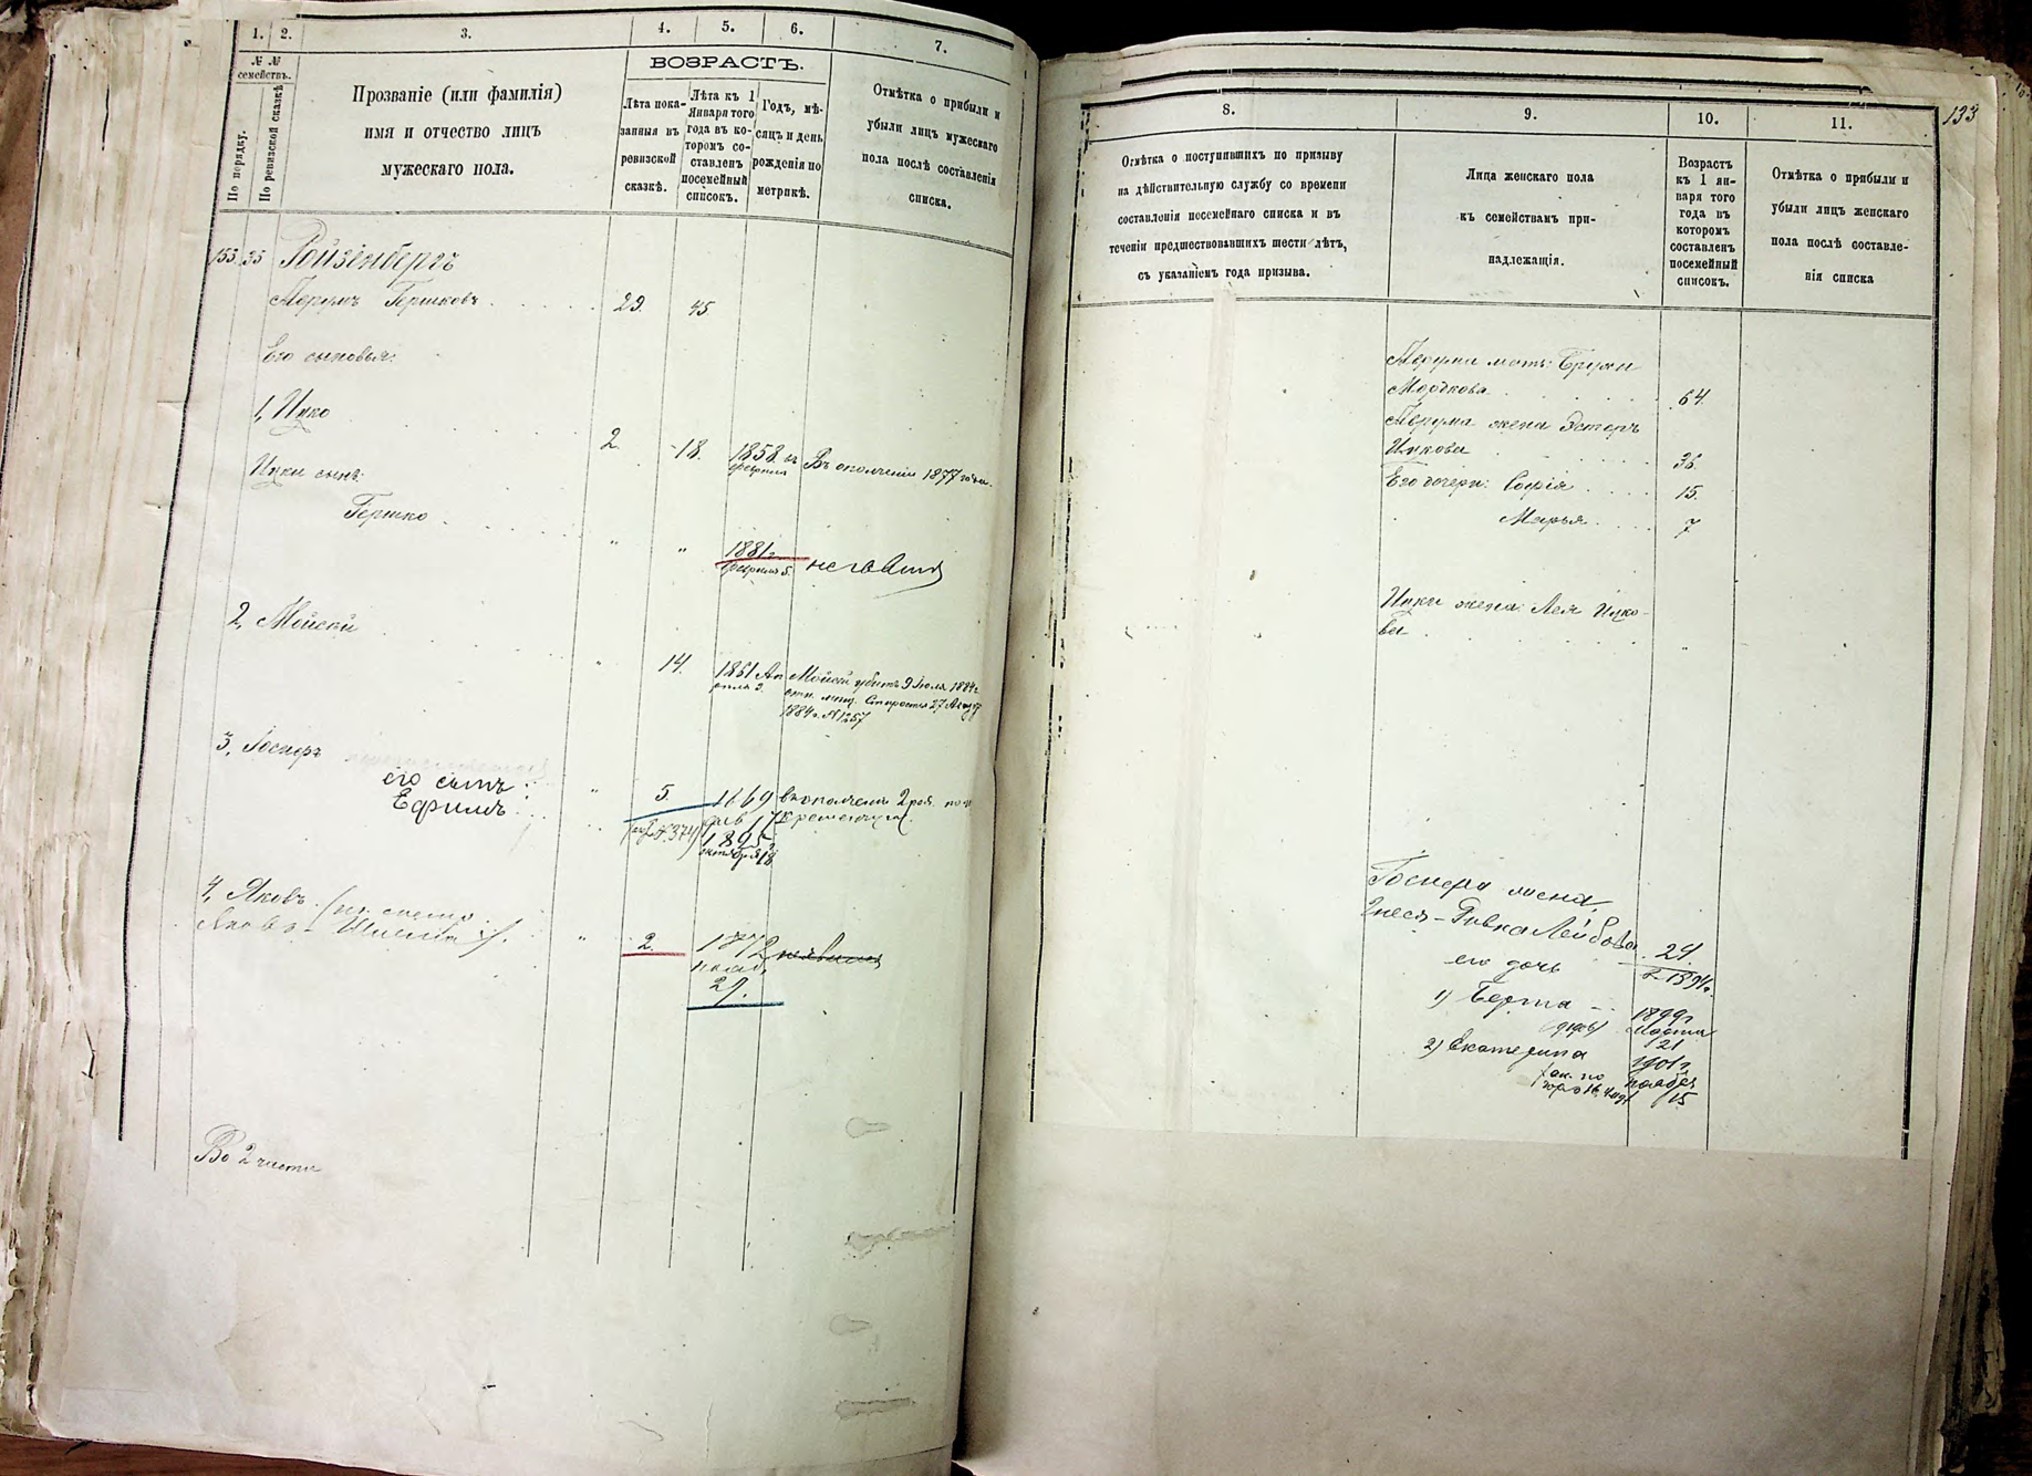 1. 2. 3. 4. 5. 6. 7.
№ №
семействъ.
По порядку.
По ревизской сказкѣ
Прозваніе (или фамилія)
имя и отчество лицъ
мужескаго пола.
ВОЗРАСТЪ.
Лѣта пока-
занныя въ
ревизской
сказкѣ.
Лѣта къ 1
Января того
года въ ко-
торомъ со-
ставленъ
посемейный
списокъ.
Годъ, мѣ-
сяцъ и день
рожденія по
метрикѣ.
Отмѣтка о прибыли и
убыли лицъ мужескаго
пола послѣ составленія
списка.
153 35 Ройзенбергъ
Гершковъ 29. 45
Его сыновья:
1, Ицко 2. 18. 1858 Въ ополченіи 1877 года.
февраля
Ицки сынъ:
Гершко " " 1881г
февраля 5.
2, Мойсей " 14. 1861 Ап Мойсей убитъ 9 Іюля 1884г
реля 3. Старосты 27
1884г. № 1257
3, Іосифъ
его сынъ " 5. 1869
Ефимъ 17
1895
октября 18
4, Яковъ
" 2. 1872 неявился
29.
Во 2 части
133
8. 9. 10. 11.
Отмѣтка о поступившихъ по призыву
на дѣйствительную службу со времени
составленія посемейнаго списка и въ
теченіи предшествовавшихъ шести лѣтъ,
съ указаніемъ года призыва.
Лица женскаго пола
къ семействамъ при-
надлежащія.
Возрастъ
къ 1 ян-
варя того
года въ
которомъ
составленъ
посемейный
списокъ.
Отмѣтка о прибыли и
убыли лицъ женскаго
пола послѣ составле-
нія списка
мать
Мордкова 64.
жена Эстеръ
Ицкова 36.
Его дочери: Софія 15.
Марья 7
Ицки жена Лея Ицко-
ва "
Іосифа жена,
Гнеся-Ривка Лейбова 24
его дочь
1) Берта 1899г
марта
21
2) Екатерина 1901г.
ноября
15